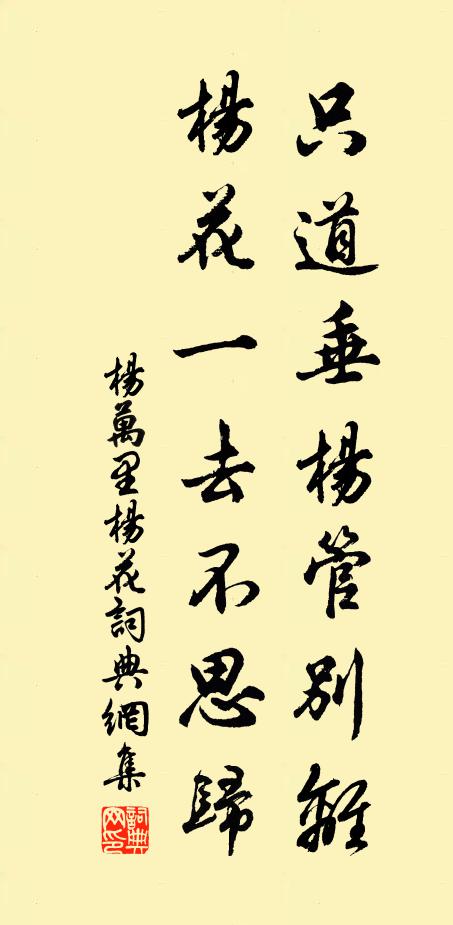 只道垂楊管別離
楊花一去不思歸
楊萬里楊花詞典網集
詞典網印